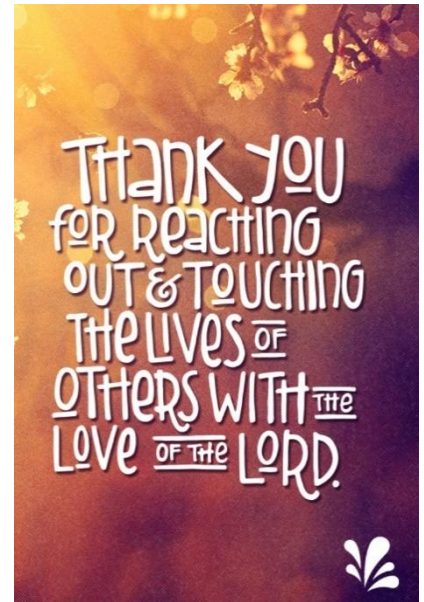 THANK YOU
FOR REACHING
OUT & TOUCHING
THE LIVES OF
OTHERS WITH THE
LOVE OF THE LORD.